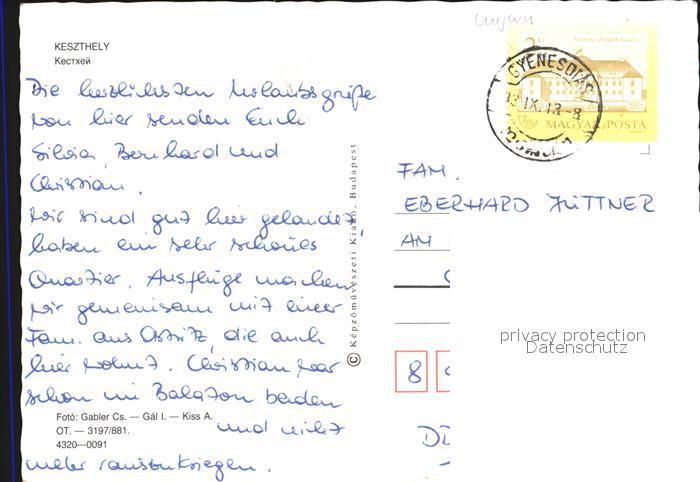 Ungarn
KESZTHELY
Кестхей
Die herzlichsten Urlaubsgrüße
von hier senden Euch
Silvia, Bernhard und
Christian.
Wir sind gut hier gelandet,
haben ein sehr schönes
Quartier. Ausflüge machen
wir gemeinsam mit einer
Fam. aus Ostritz, die auch
hier wohnt. Christian war
schon im Balaton baden
und nicht
mehr rauszukriegen.
Fotó: Gabler Cs. — Gál I. — Kiss A.
OT. — 3197/881.
4320—0091
© Képzőművészeti Kiadó, Budapest
GYENESDIÁS
MAGYAR POSTA
FAM.
EBERHARD JÜTTNER
AM
8
DD
privacy protection
Datenschutz